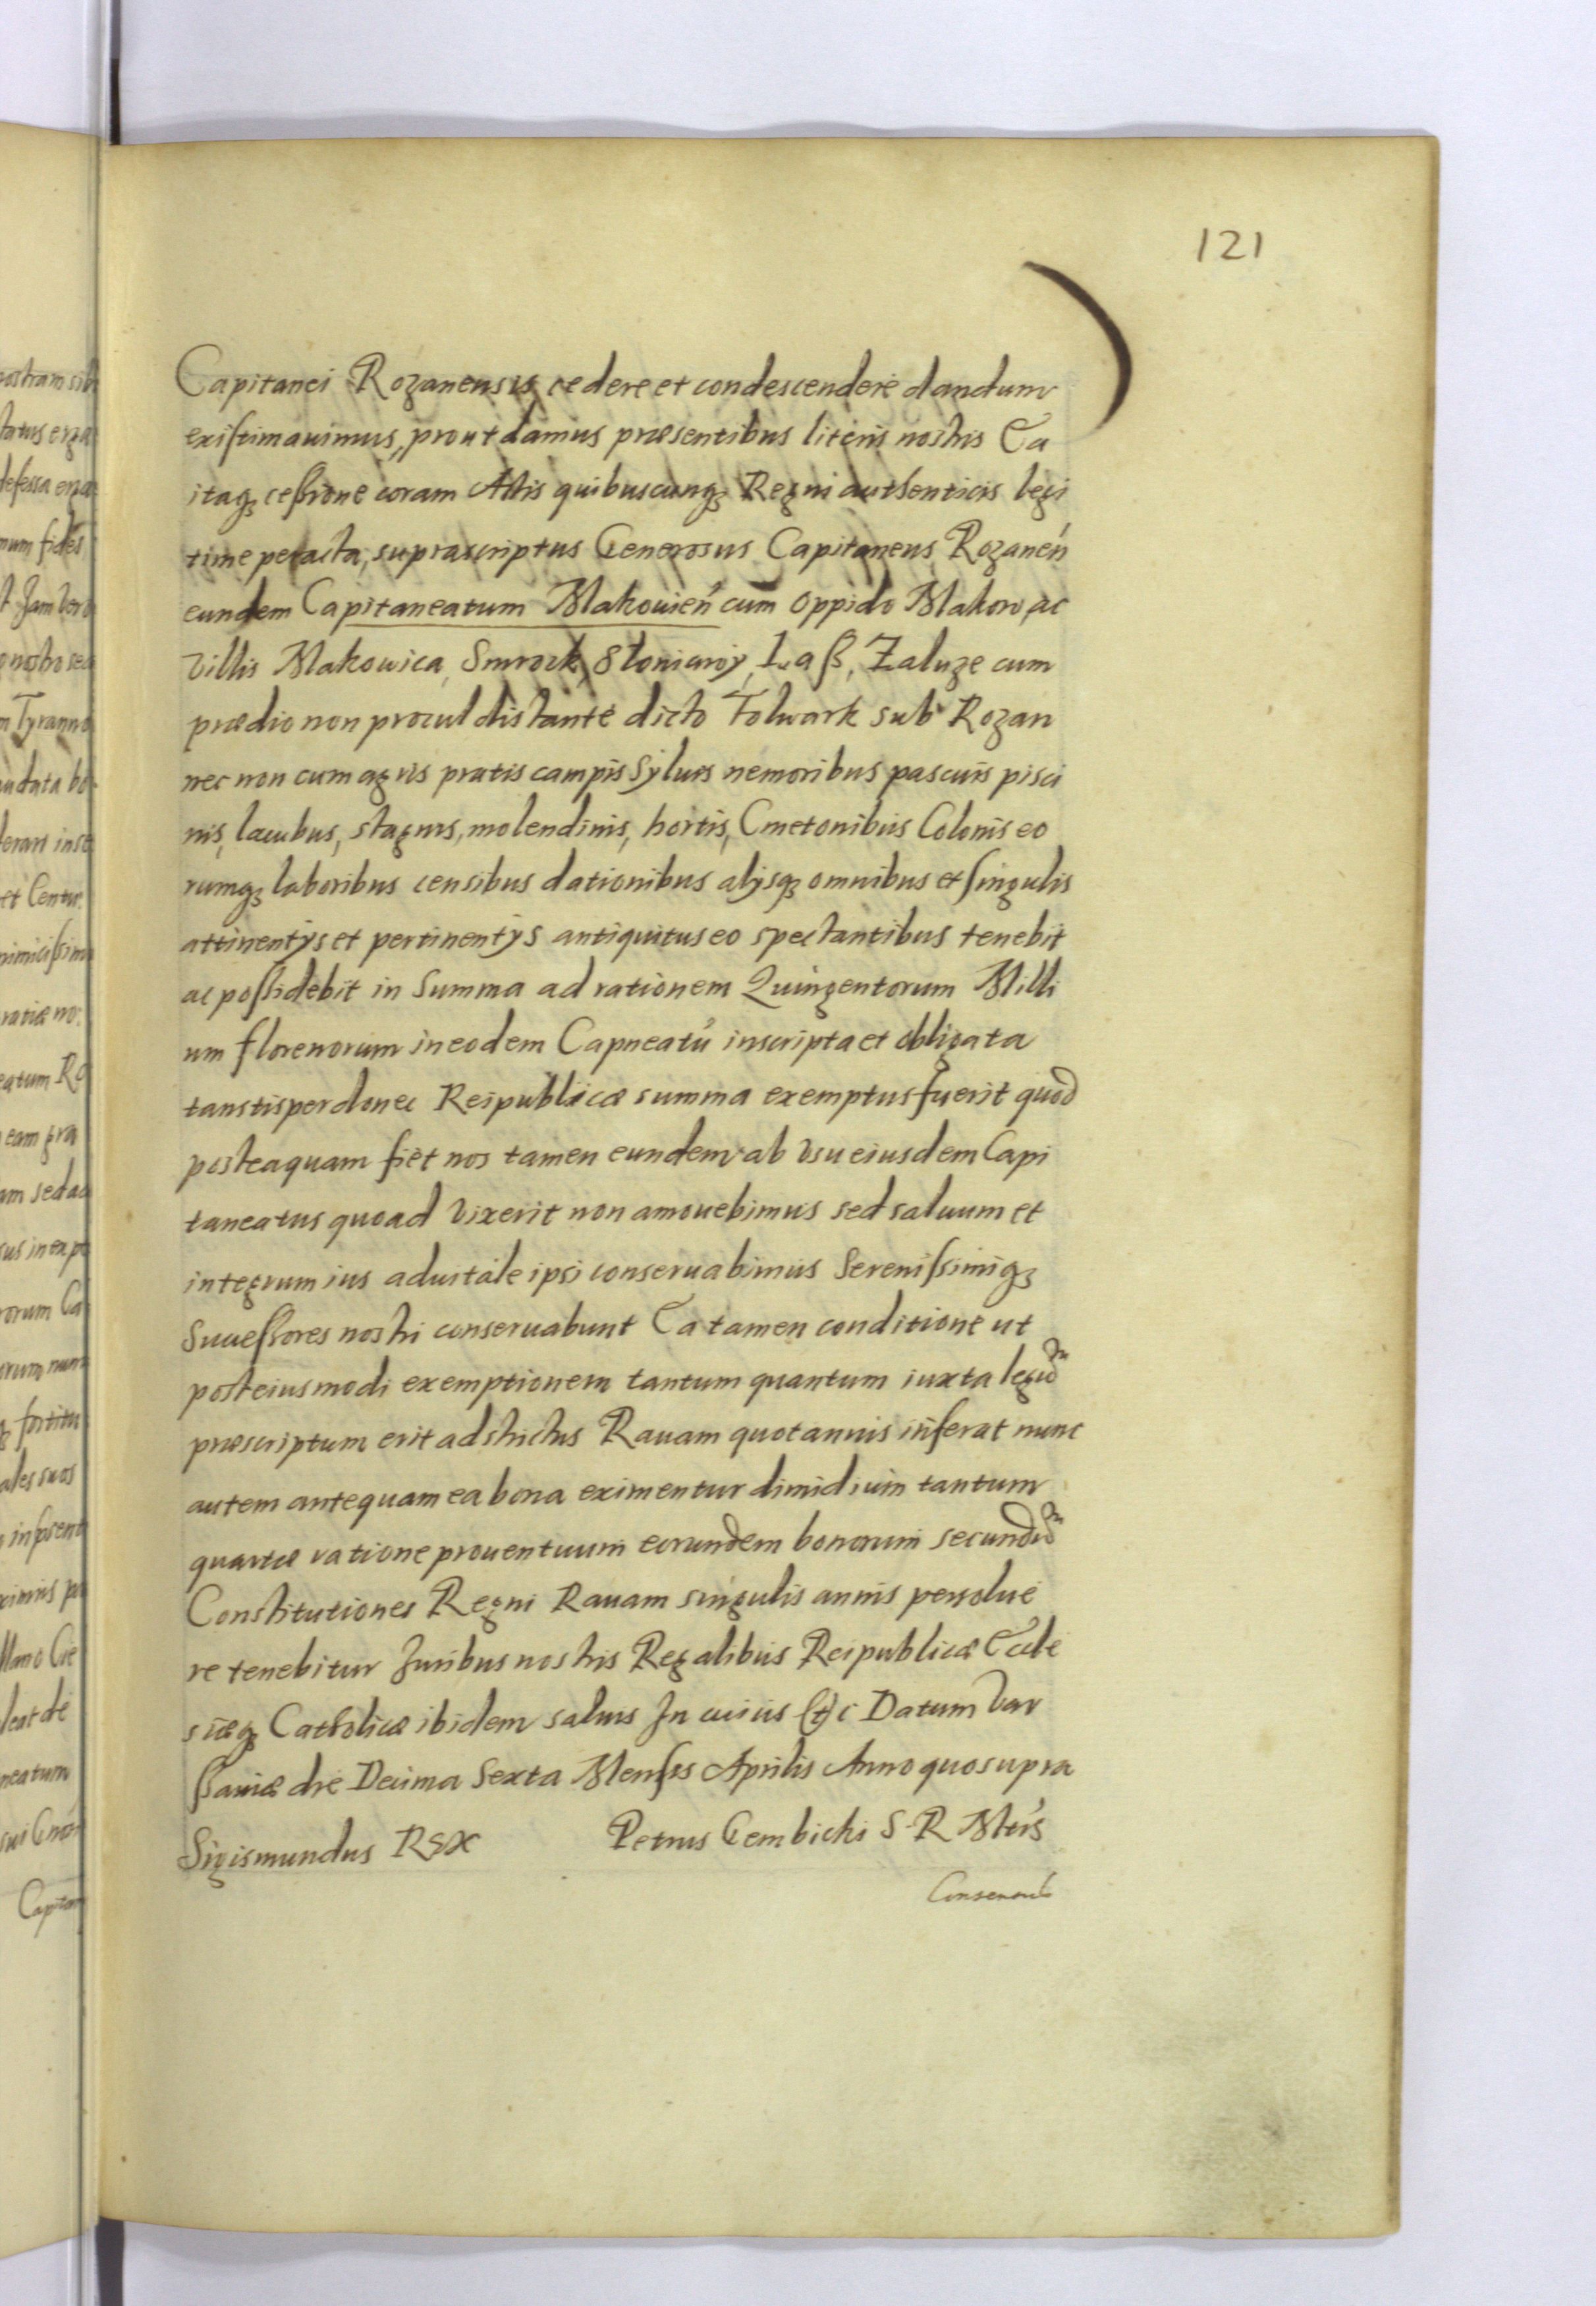 121
Capitanei Rozanensis cedere et condescendere dandum
existimauimus, prout damus præsentibus literis nostris Ea
itaq₃ cessione coram Actis quibuscunq₃ Regni authenticis legi
time peracta, suprascriptus Generosus Capitaneus Rozanen̄
eundem Capitaneatum Makouien̄ cum oppido Makow, ac
Villis Makowica, Smrock, Sloniawy, Laß, Zaluze cum
prædio non procul distante dicto Folwark sub Rozan
nec non cum agris pratis campis Syluis nemoribus pascuis pisci
nis, lacubus, stagnis, molendinis, hortis, Cmetonibus Colonis eo
rumq₃ laboribus censibus dationibus alijsq₃ omnibus et singulis
attinentijs et pertinentijs antiquitus eo spectantibus tenebit
ac possidebit in Summa ad rationem Quingentorum Milli
um florenorum in eodem Capneatú inscripta et obligata
tanstisper donec Reipublicæ summa exemptus fuerit quod
posteaquam fiet nos tamen eundem ab vsu eiusdem Capi
taneatus quoad vixerit non amouebimus sed saluum et
integrum ius aduitale ipsi conseruabimus Serenissimiq₃
Successores nostri conseruabunt Ea tamen conditione ut
post eiusmodi exemptionem tantum quantum iuxta legū
præscriptum erit adstrictus Rauam quotannis inferat nunc
autem antequam ea bona eximentur dimidium tantum
quartæ ratione prouentuum eorundem bonorum secundū
Constitutiones Regni Rauam singulis annis persolue
re tenebitur Juribus nostris Regalibus Reipublicæ Eccle
siæq₃ Catholicæ ibidem saluis In cuius etc Datum Var
ssauiæ die Decima Sexta Mensis Aprilis Anno quo supra
Sigismundus Rex Petrus Gembicki S R Mtis